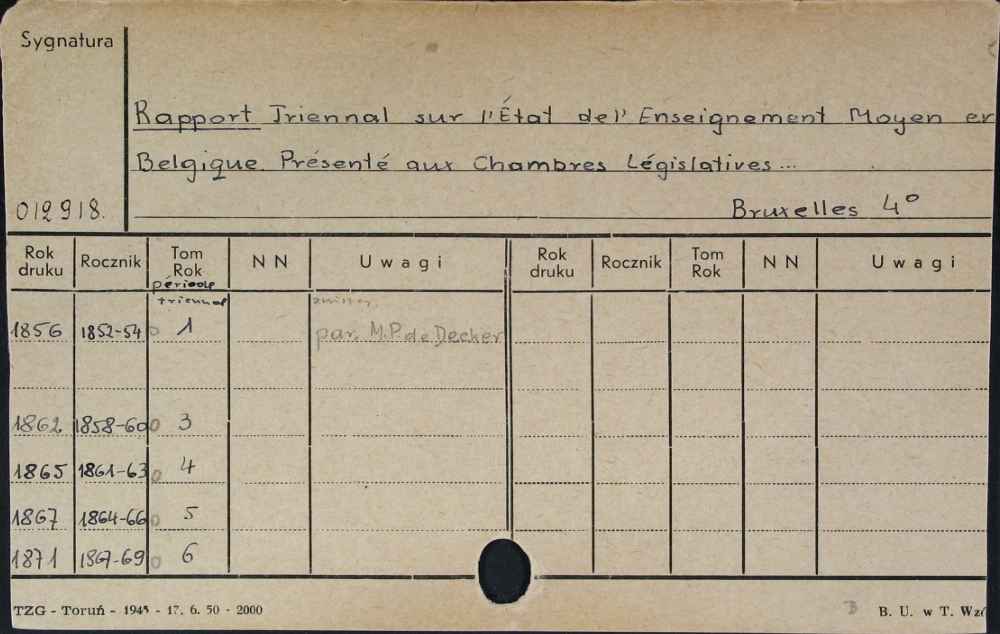 Sygnatura
Rapport Triennal sur l'État del' Enseignement Moyen en
Belgique. Présenté aux Chambres Législatives...
012918. Bruxelles 4°
Rok druku Rocznik Tom Rok NN Uwagi Rok druku Rocznik Tom Rok NN Uwagi
période
triennal
1856 1852-54 1 par. M.P. de Decker
1862 1858-60 3
1865 1861-63 4
1867 1864-66 5
1871 1867-69 6
TZG - Toruń - 1945 - 17. 6. 50 - 2000 B. U. w T.